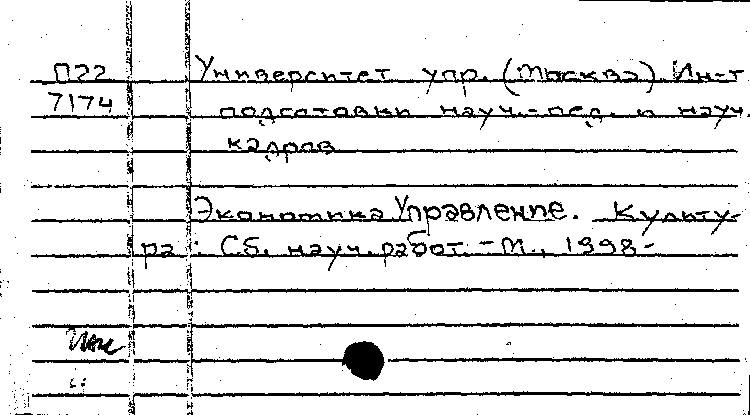 П22 Университет упр. (Москва). Ин-т
7174 подготовки науч.-пед. и науч.
кадров
Экономика Управление. Культу-
ра : Сб. науч. работ. - М., 1998-